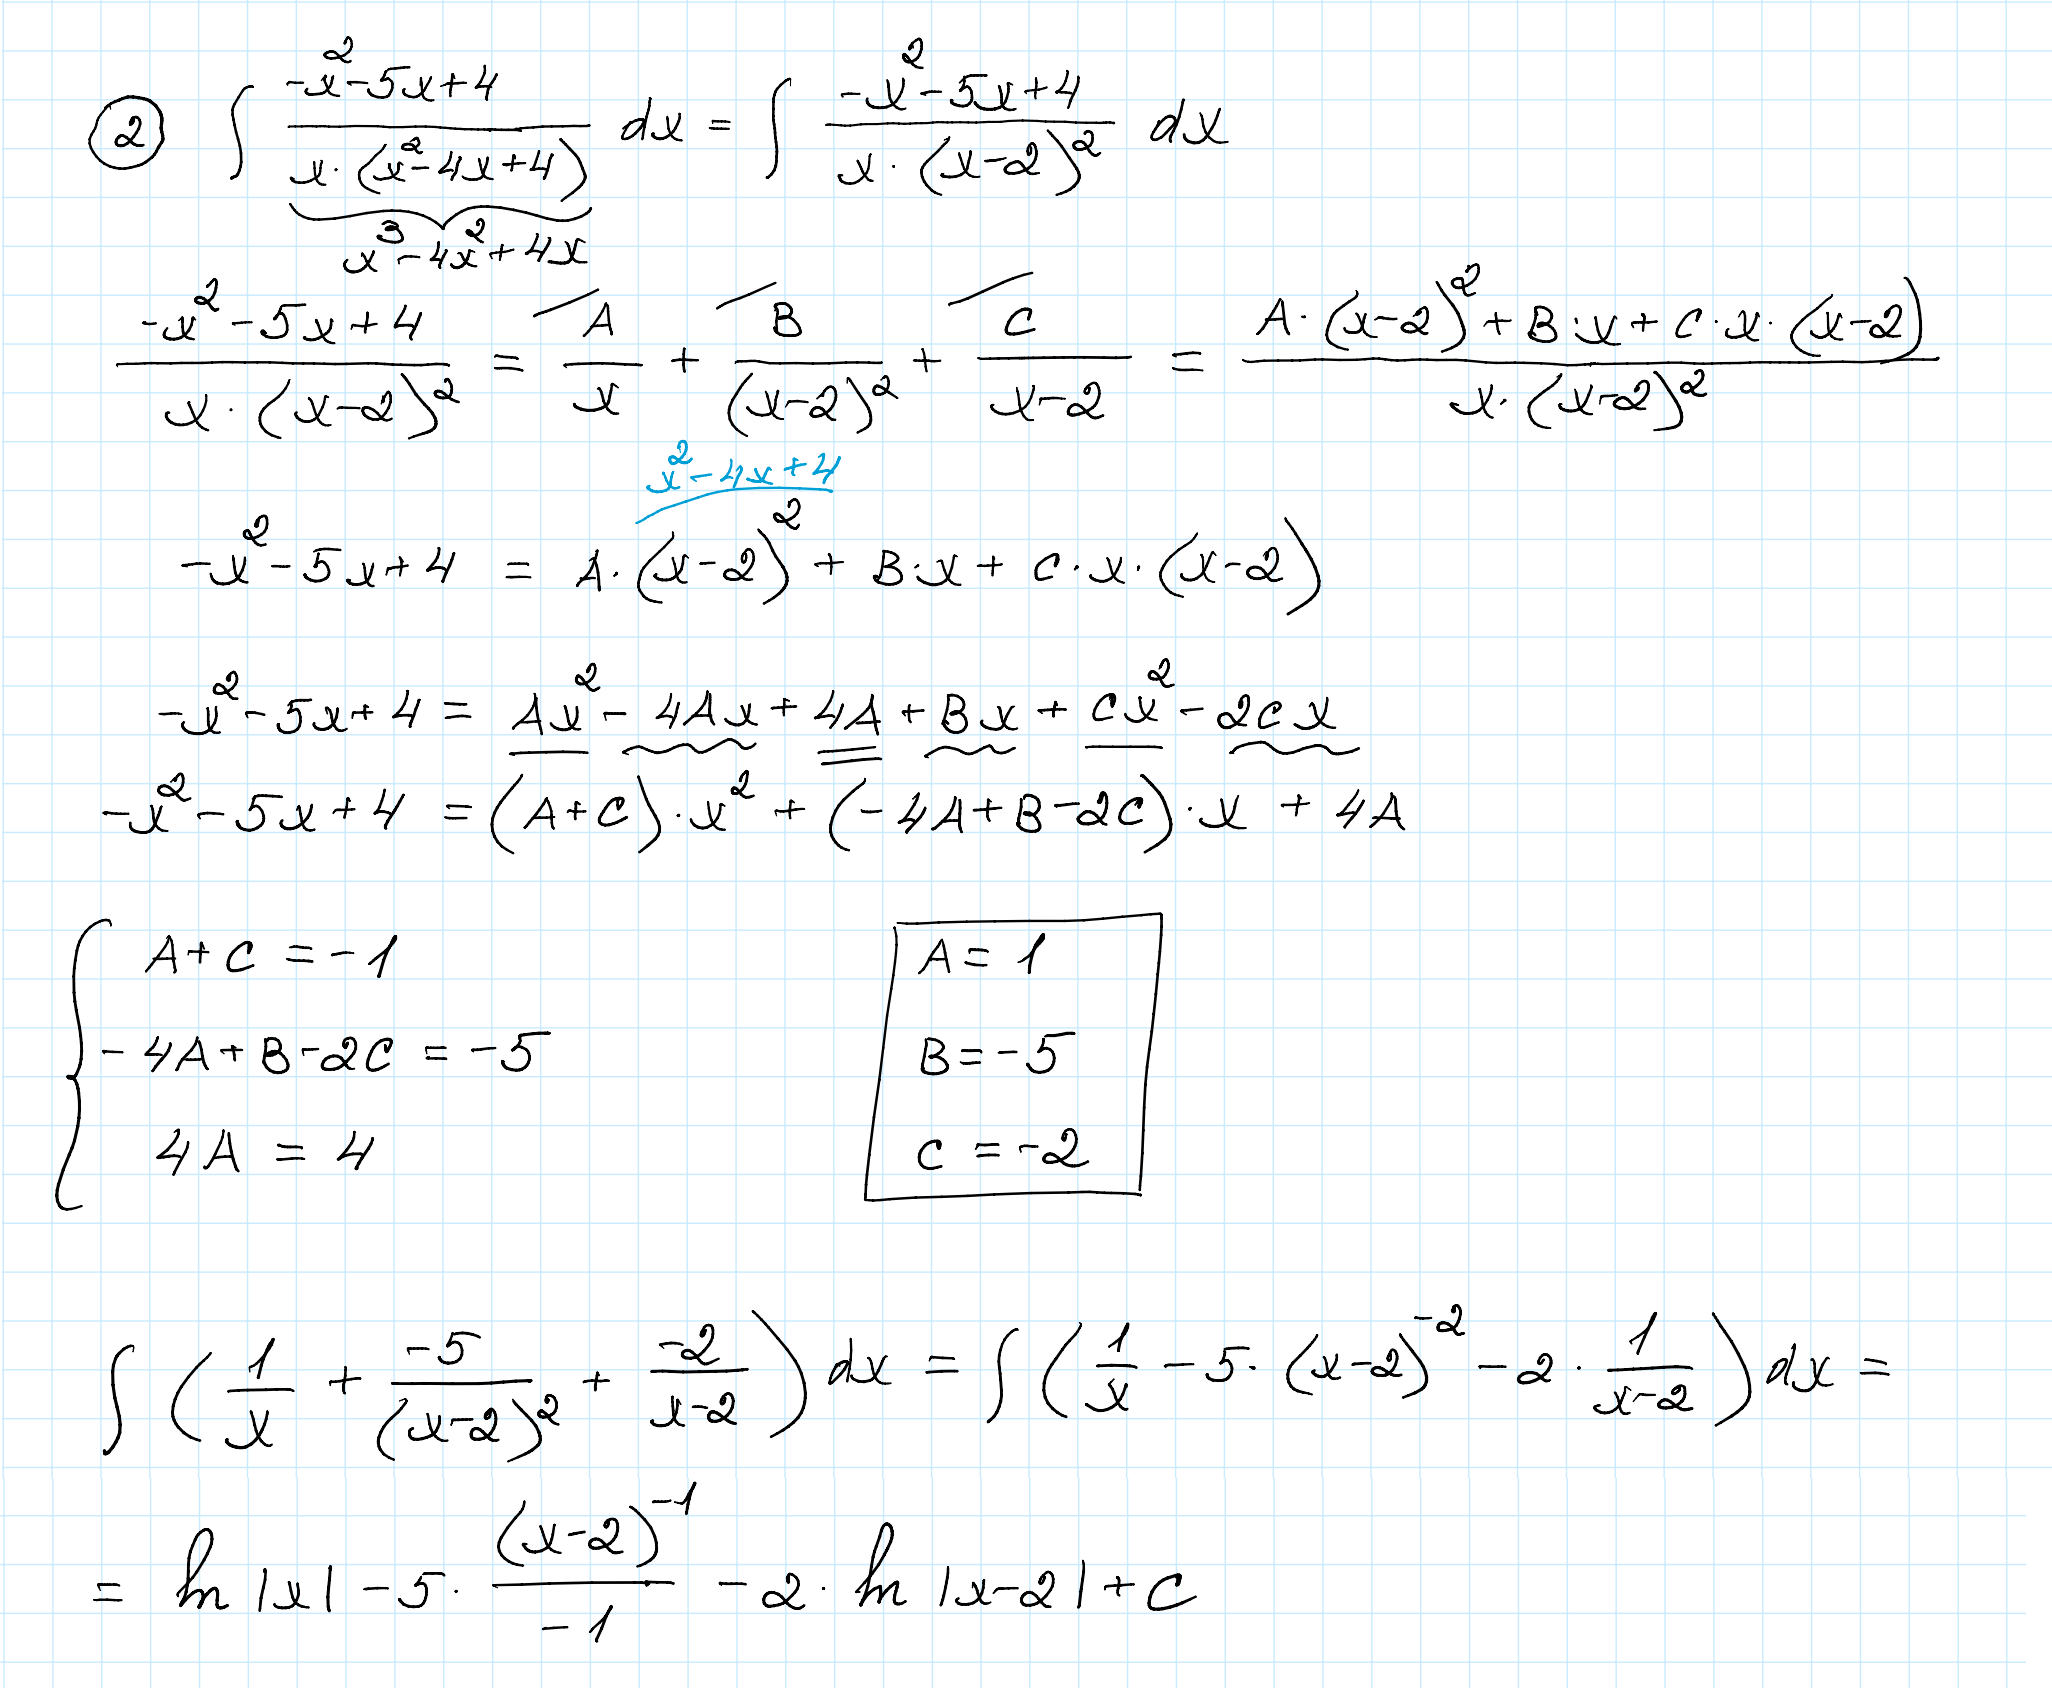 ② ∫ (-x²-5x+4)/(x·(x²-4x+4)) dx = ∫ (-x²-5x+4)/(x·(x-2)²) dx
x³-4x²+4x
(-x²-5x+4)/(x·(x-2)²) = A/x + B/(x-2)² + C/(x-2) = (A·(x-2)²+B·x+C·x·(x-2))/(x·(x-2)²)
x²-4x+4
-x²-5x+4 = A·(x-2)² + B·x + C·x·(x-2)
-x²-5x+4 = Ax²-4Ax+4A+Bx+Cx²-2Cx
-x²-5x+4 = (A+C)·x² + (-4A+B-2C)·x + 4A
A+C = -1
-4A+B-2C = -5
4A = 4
A = 1
B = -5
C = -2
∫ (1/x + -5/(x-2)² + -2/(x-2)) dx = ∫ (1/x - 5·(x-2)⁻² - 2·1/(x-2)) dx =
= ln|x| - 5·(x-2)⁻¹/-1 - 2·ln|x-2| + C